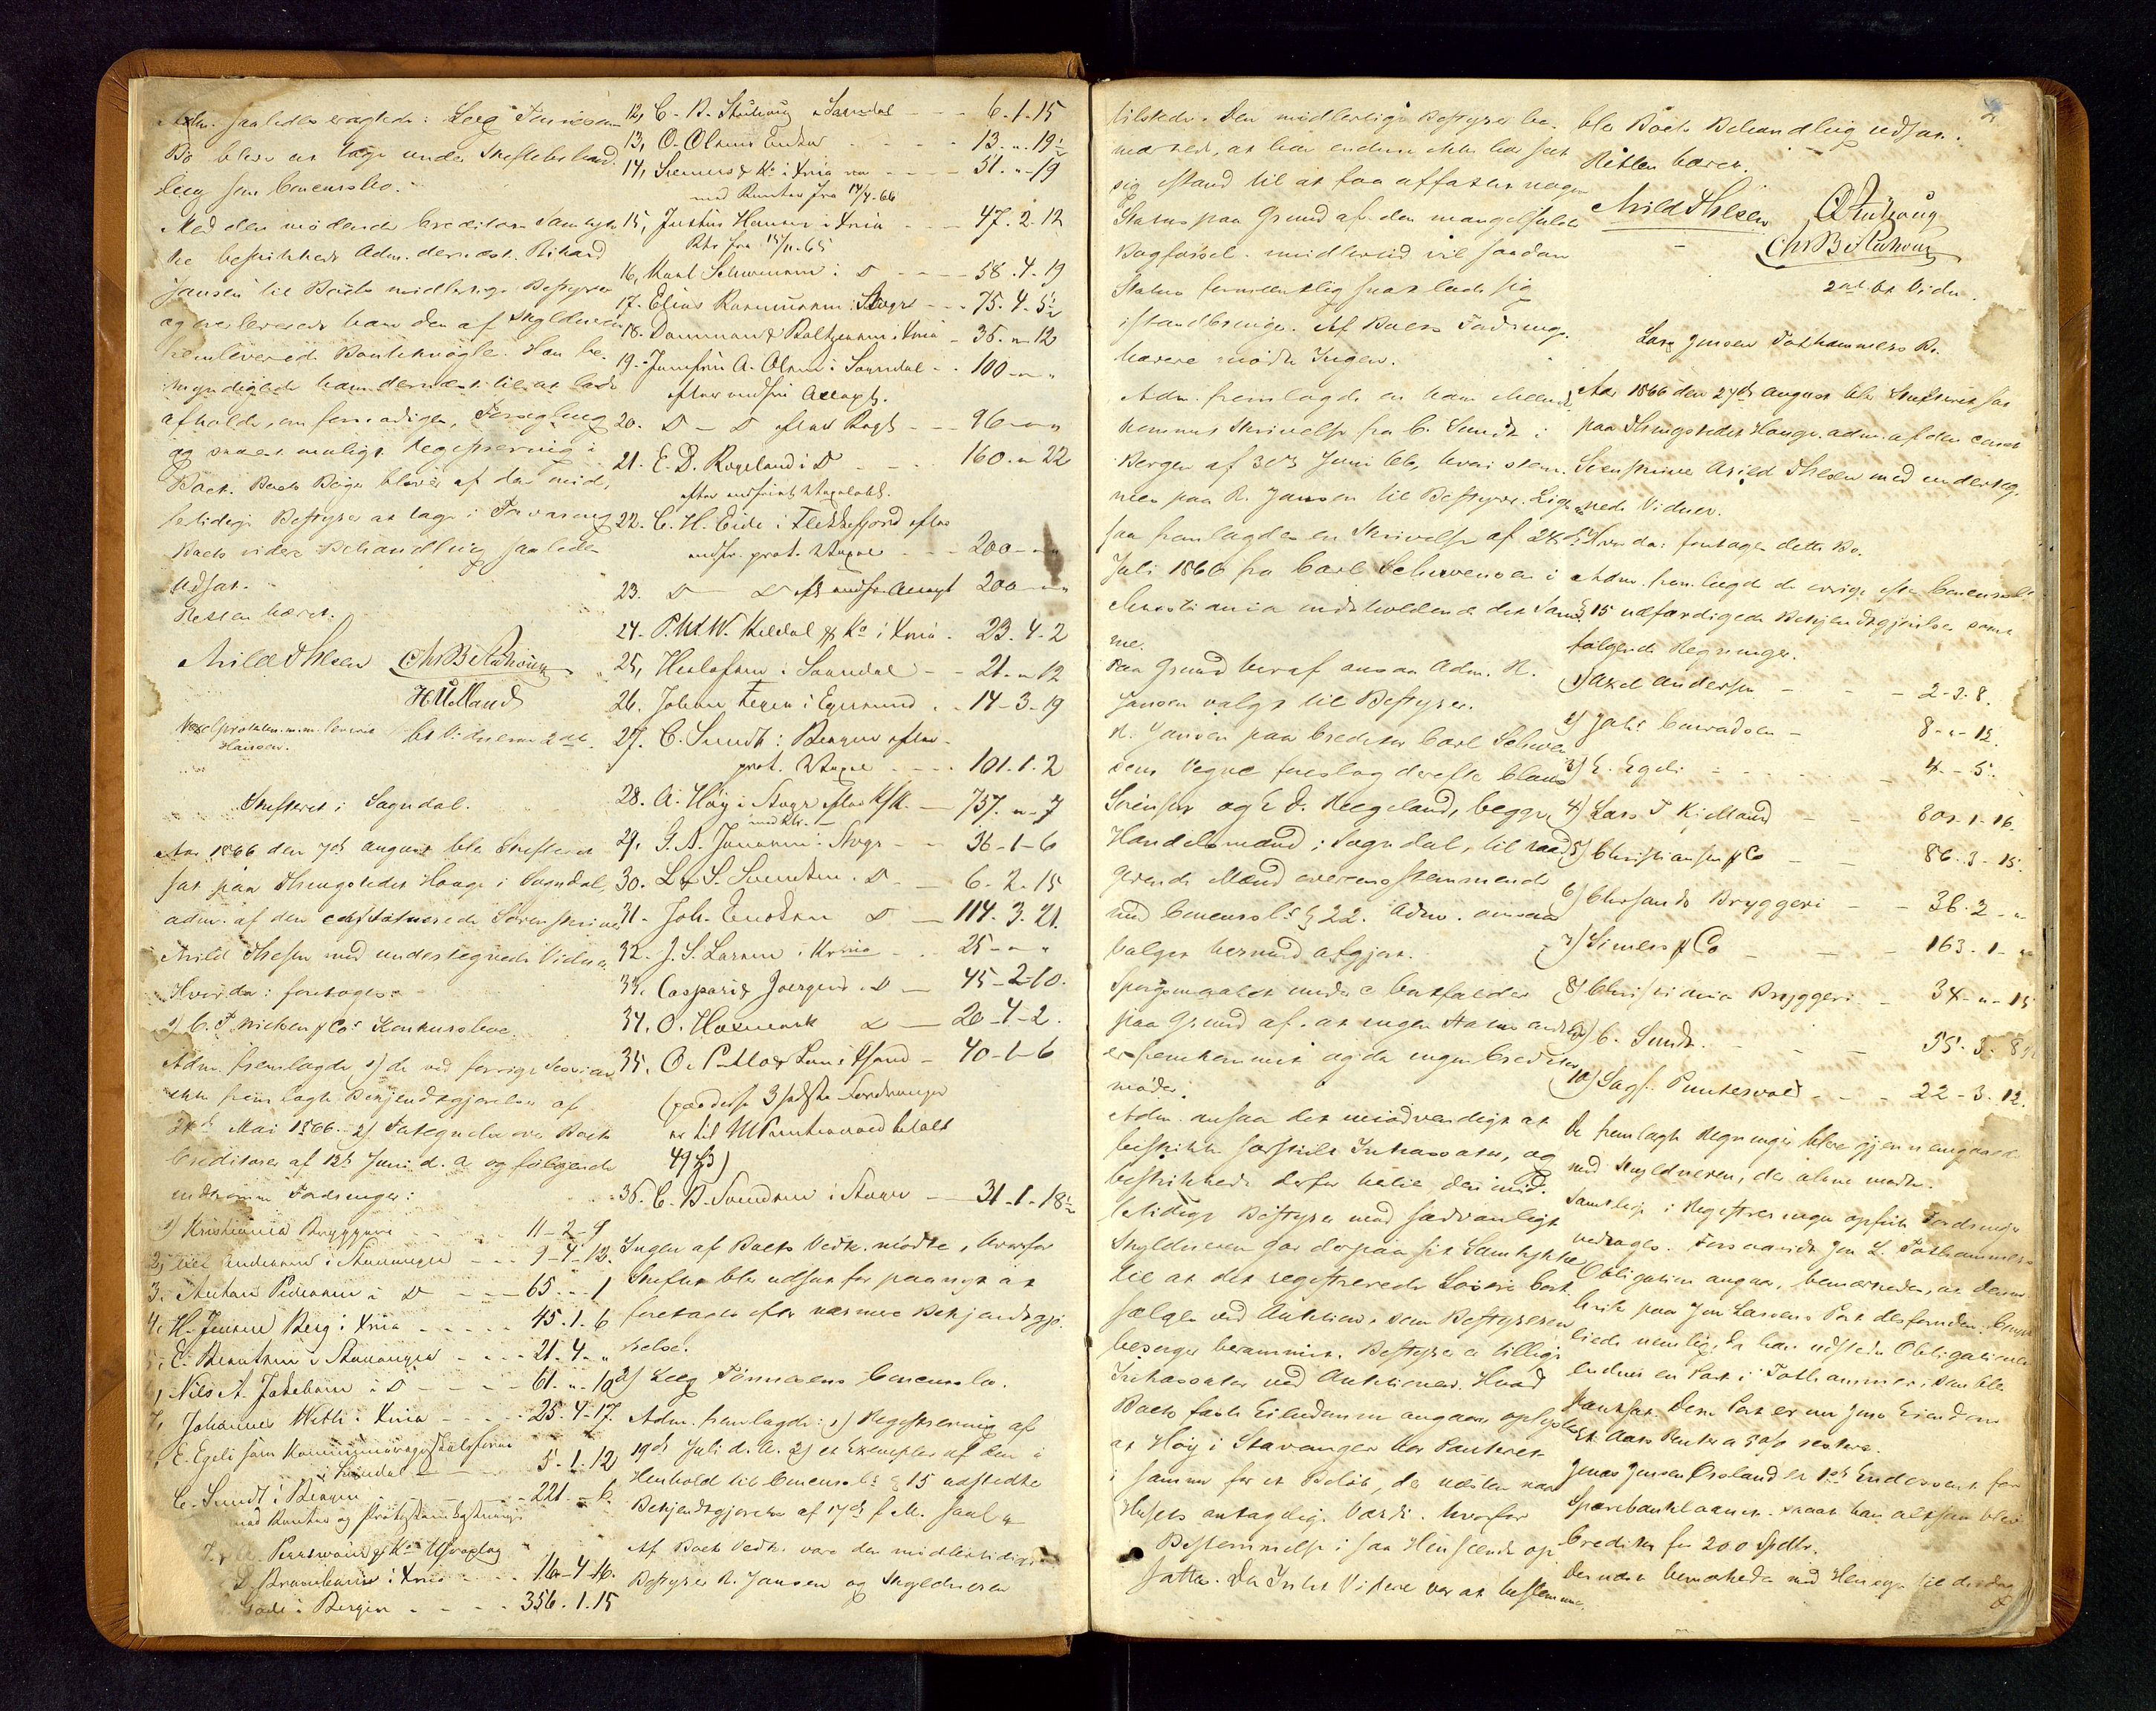 Adm. saaledes eragtede: Leeg Tönnesens
Bo bliver at tage under Skiftebehand-
ling som Concursbo.
Med den mödende Creditors Samtyk-
ke beskikkede Adm. dernæst Rikard
Jansen til Boets midlertidige Bestyrer
og overleverede ham den af Skyldneren
fremleverede Boutiknögle. Han be-
myndigede ham dernæst til at lade
afholde, om fornödiges, Forsegling
og snarest muligt Registrering i
Boet. Boets Böger bliver af den mid-
lertidige Bestyrer at tage i Forvaring
Boets videre Behandling saaledes
Udsat.
Retten hævet.
Arild Thesen Chr B Stuhoug
H U Mland
bet Vidnerne 2de
Skifteret i Sogndal.
Aar 1866 den 7de August blev Skifteret
sat paa Thingstedet Hauge i Sogndal,
adm. af den constituerede Sorenskriver
Arild Thesen med undertegnede Vidner
Hvorda: foretoges:
1) C. F. Nielsen & Cos Konkursboe.
Adm. fremlagde 1) de ved forrige Session
ikke fremlagte Bekjendtgjörelser af
24de Mai 1866. 2) Fortegnelse over Boets
Creditorer af 12te Juni d. A. og fölgende
indkomne Fordringer:
1) Kristiania Bryggeri 11-2-9
2, Andersen i Stavanger 9-4-12.
3. Anton Pedersen i D 65 - 1
4. H. Jensen Berg i Xnia 45.1.6
5, E. Berentsen i Stavanger 21-4-"
6, Nils A. Jakobsen i D 61.".10
7, Johannes Weth i Xnia 25-4-17.
E. Egeli som Kommunekasserer
i Sogndal 5-1.12
C. Sundt i Bergen 221.-6.
med Renter og Protestomkostninger
i Xnia 16-4-16.
i Bergen 356.1.15
12, C. B. Stuhoug i Sogndal 6.1.15
13, O. Olsens Enke 13.".19½
14, Siemers & Ko i Xnia 51."-19
med Renter fra 14/4-66
15, Justus Hansen i Xnia 47.2.12
Rtr fra 15/11-65
16, Karl Schwensen i D 58.4.19
17. Elias Rasmussen i Stavgr 75.4.5½
18. Damman & Boltzmann i Xnia 35."12
19. Jomfru A. Olsen i Sogndal 100-"-"
efter indfrit Accept.
20. D - D efter Regt 96-"-"
21. E. D. Rogeland i D 160." 22
efter indfriet Vexelobl.
22. C. H. Eide i Flekkefjord efter
indfr. prot. Vexel 200-"-"
23. D D eft indfr. Accept 200-"-"
24. P. W. W. Kildal & Ko i Xnia 23.4-2
25, Helafsen i Sogndal 21-"12
26. Johan Feyer i Egersund 14-3-19
27. C. Sundt i Bergen efter
prot. Vexel 101.1.2
28. A. Höy i Stavgr efter 757."-7
med Rtr.
29. G. A. Johansen i Stavgr 36-1-6
30. L & S. Svendsen. D 6.2.15
31. Joh. Enoksen D 114.3.21.
32. J. S. Larsen i Krnia 25-"-"
33. Caspari & Joergens. D 45-2-10.
34. O. Hosmark D 20-4-2.
35. O. P. Moe i Xsand 40-1-6
(paa disse 3 sidste Fordringer
er til M Puntervold betalt
49 )
36. C. B. Svendsen i Stavgr 31-1-18½
Ingen af Boets Vedk. mödte, hvorfor
Skiftet blev udsat for paany at
foretages efter nærmere Bekjendtgjö-
relse.
2) Leeg Tönnesens Concursbo.
Adm. fremlagde: 1) Registrering af
19de Juli d. A. 2) et Exemplar af den i
Henhold til Concursls § 15 udstedte
Bekjendtgjörelse af 17de f. M. saal
Af Boets Vedk. vare den midlertidige
Bestyrer R. Jansen og Skyldneren
tilstede. Den midlertidige Bestyrer be-
mærkede, at han endnu ikke har seet
sig istand til at faa affattet nogen
Status paa Grund af den mangelfulde
Bogförsel. midlertid vil saadan
Status formentlig snart lade sig
istandbringe. Af Boets Fordrings-
havere mödte Ingen.
Adm. fremlagde en ham ihænde-
kommen Skrivelse fra C. Sundt i
Bergen af 30te Juni 66, hvori stem-
mes paa R. Jansen til Bestyrer. Lige-
saa fremlagdes en Skrivelse af 24de
Juli 1866 fra Carl Schwensen i
Christiania indeholdende det Sam-
me.
Paa Grund heraf ansaa Adm. R.
Jansen valgt til Bestyrer.
R. Jansen paa Creditor Carl Schwen-
sens Vegne foreslog derefter Claus
Sörensen og E. D. Regeland, begge
Handelsmænd i Sogndal, til raad-
givende Mænd overensstemmende
med Concursls § 22. Adm. ansaa
Valget hermed afgjort.
Spörgsmaalet under c bortfalder
paa Grund af at ingen Status endnu
er fremkommet og da ingen Creditor
möder.
Adm. ansaa det nödvendigt at
beskikke særskilt Inkassator, og
beskikkede derfor hertil den mid-
lertidige Bestyrer mod sædvanligt
Skyldneren gav derpaa sit Samtykke
til at det registrerede Lösöre bort-
sælges ved Auktion, som Bestyreren
besörger berammet. Bestyrer er tillige
Inkassator ved Auktionen. Hvad
Boets faste Eiendomme angaar oplystes
at Höy i Stavanger har Panteret
i samme for et Belöb, der næsten naar
Husets antagelige Værdi. hvorfor
Bestemmelse i saa Henseende op-
sattes. Da Intet Videre var at bestemme
blev Boets Behandling udsat.
Retten hævet.
Arild Thesen O Stuhoug
Chr B Stuhoug
2de bt Vidn.
Lars Jonsen Fothammers Bo.
Aar 1866 den 27de August blev Skifteret sat
paa Thingstedet Hauge. adm. af den const
Sorenskriver Arild Thesen med underteg-
nede Vidner.
Hvorda: foretages dette Bo.
Adm. fremlagde de övrige efter Concursls
§ 15 udfærdigede Bekjendtgjörelser samt
fölgende Regninger.
1) Axel Andersen 2-2-8.
2) Jahs Conradsen 8-"-12.
3) E. Egeli 4--5.
4) Lars T Kjelland 801-1-16.
5) Christiansen & Co 86-3-15.
6) Chrsands Bryggeri 36-2-"
7) Simers & Co 163-1-"
8) Christiania Bryggeri 34-"-15
9) C. Sundt. 55-3-8½
10) Sagf. Puntervold 22-3-12.
De fremlagte Regninger bleve gjennemgaaede
med Skyldneren, der alene mödte.
Samtlige i Registreringen opförte Fordringer
vedtoges. Forsaavidt Jon L. Fothammers
Obligation angaar, bemærkedes, at denne
hvile paa Jon Larsens Part
liede nemlig, da han udstedte Obligationen
endnu en Part i Fothammer, som blev
pantsat. Denne Part er nu Jons Eiendom
Et Aars Renter a 5 o/o restere.
Jonas Jensen Orsland er 1ste Endossent for
Sparebanklaanet. snart han altsaa blev
Creditor for 200 Spdlr.
Dernæst bemærkedes med Hensyn til